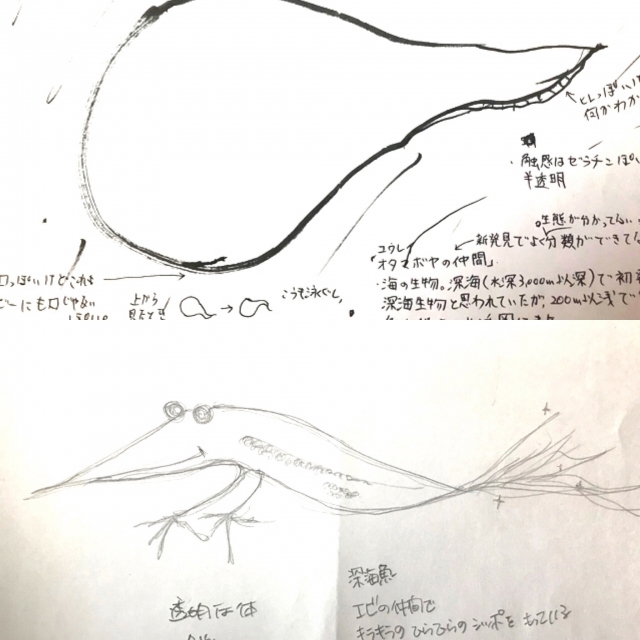 しっぽい
何かわか
・触感はゼラチンぽい
半透明
生態が分かってない
「ユウレイ
新発見でよく分類ができてな
オタマボヤの仲間」
・海の生物。深海(水深3,000m以深)で初
深海生物と思われていたが、200m以浅で
口っぽいけどこれ
にも口じゃない
上から
見たとき
深海魚
透明な体
エビの仲間で
キラキラの ひらひらの シッポを もっている